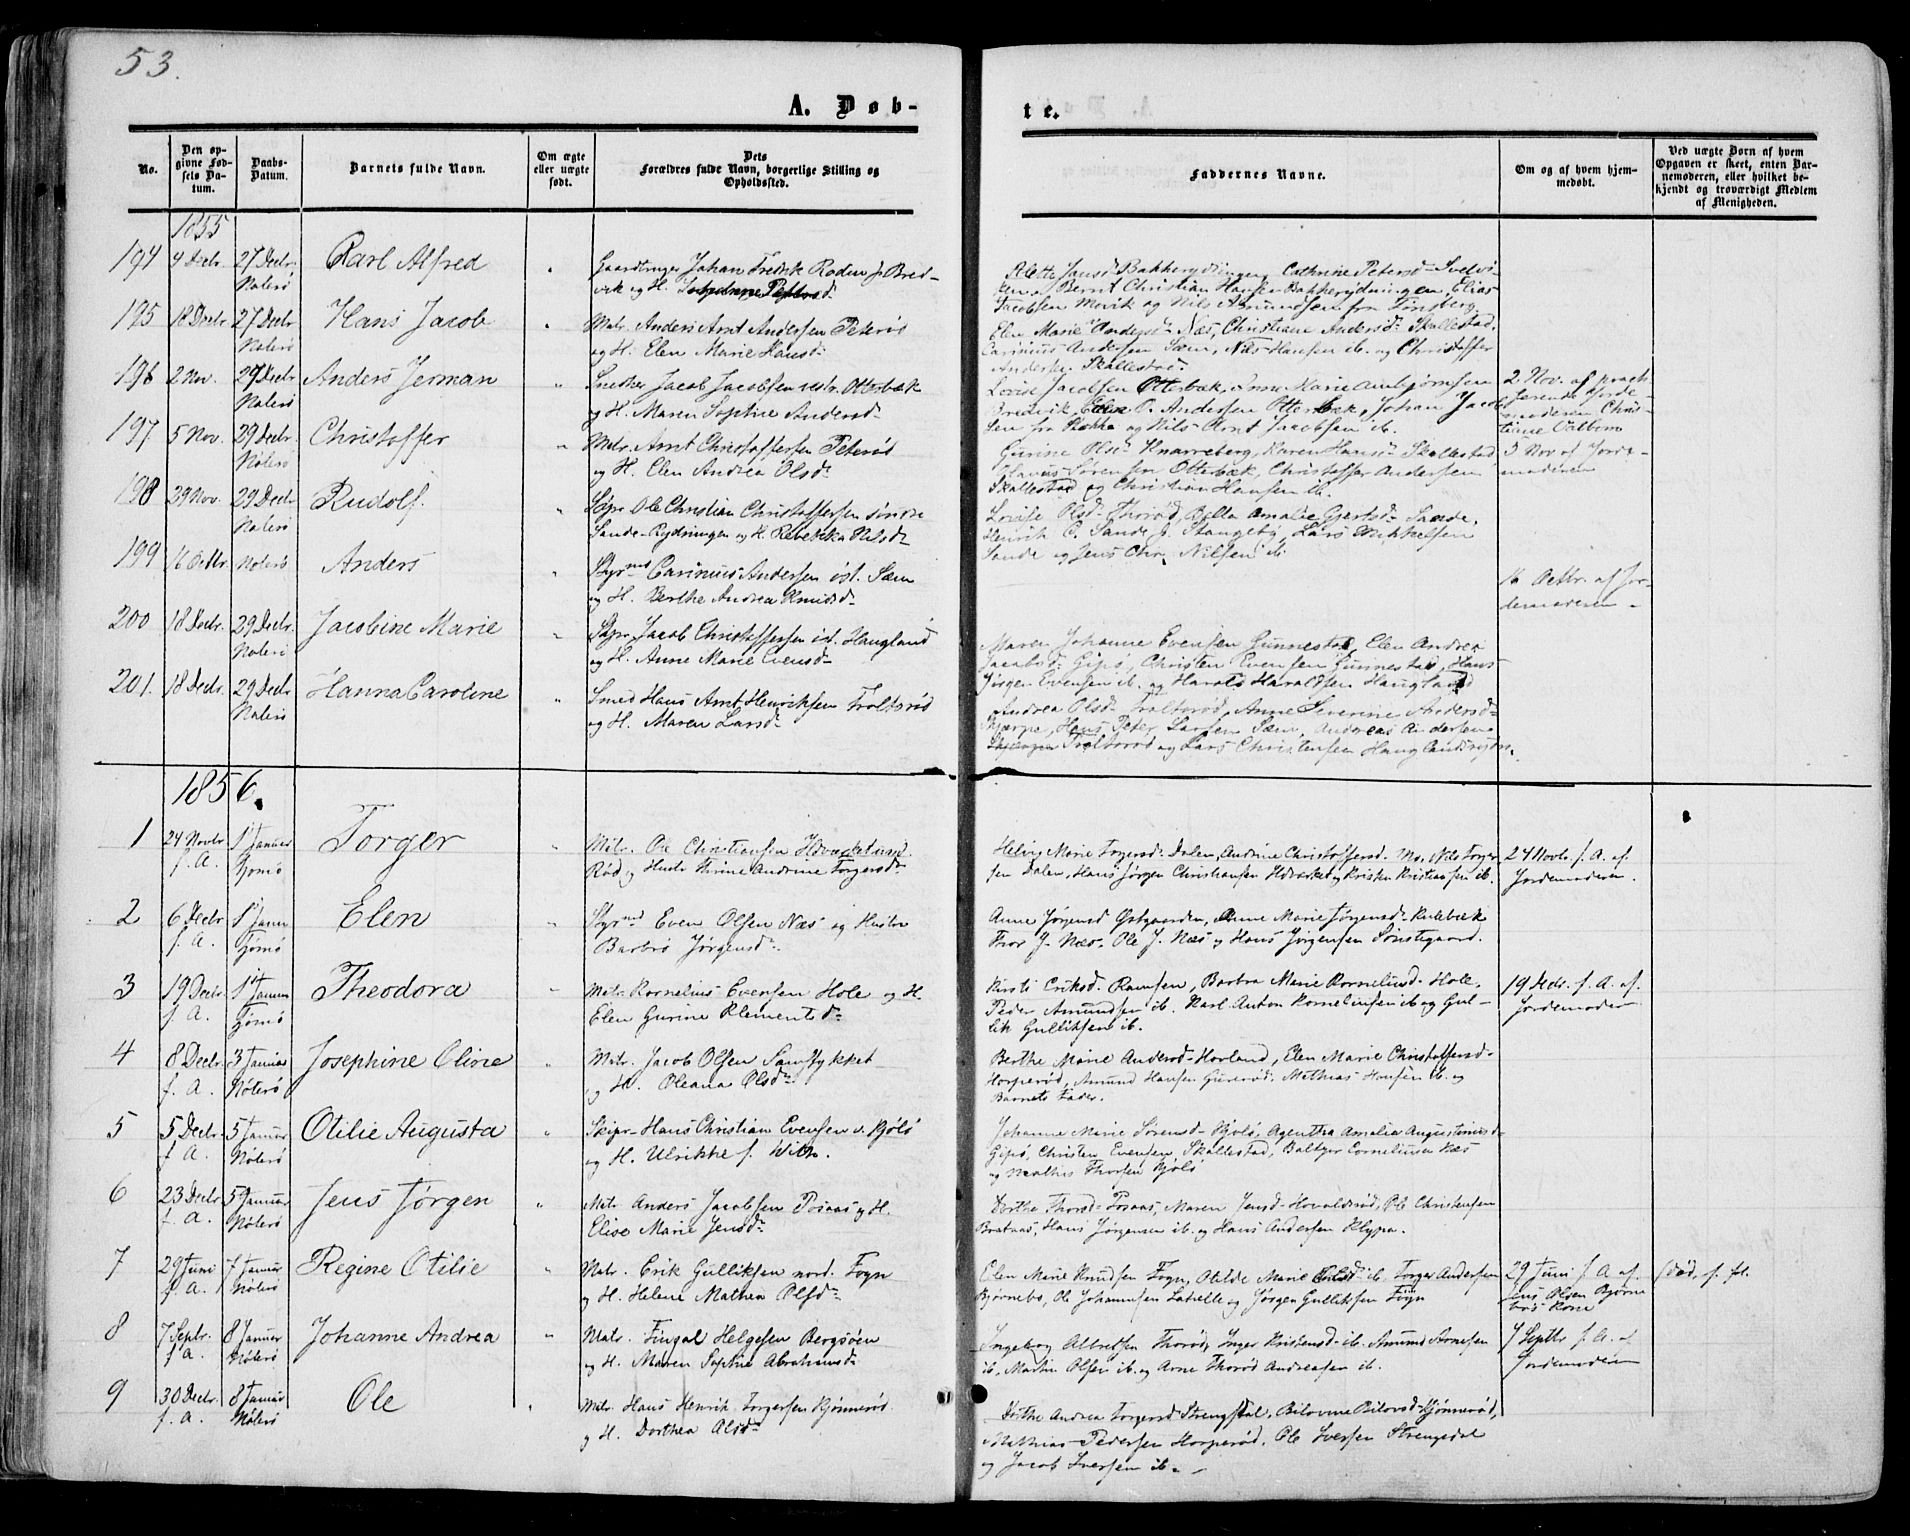 53.
A. Døb-
te.
No.
Den op-
givne Fød-
sels Da-
tum.
Daabs-
Datum.
Barnets fulde Navn.
Om ægte
eller uægte
født.
Dets
Forældres fulde Navn, borgerlige Stilling og
Opholdssted.
Faddernes Navne.
Om og af hvem hjem-
medøbt.
Ved uægte Børn af hvem
Opgaven er skeet, enten Bar-
nemoderen, eller hvilket be-
kjendt og troværdigt Medlem
af Menigheden.
1855
194 4 Decbr. 27 Decbr. Nøterø Carl Alfred
Gaardbruger Johan Fredrik Roden p. Bred-
vik og H. Johanne Petersd.
Alette Jansd. Bakkerydningen, Cathrine Petersd. Svelvi-
ken, Bernt Christian Hansen Bakkerydningen, Elias
Jacobsen Mevik og Nils Asmundsen fra Tønsberg
195 18 Decbr 27 Decbr Nøterø Hans Jacob
Matr. Anders Arnt Andersen Peterød
og H. Elen Marie Hansd.
Elen Marie Andersd. Næs, Christiane Andersd. Skallestad,
Carinius Andersen Sæm, Nils Hansen ib. og Christoffer
Anders. Skallestad.
196 2 Nov. 29 Decbr Nøterø Anders Jerman
Snedker Jacob Jacobsen vestr. Otterbæk
og H. Maren Sophie Andersd.
Lovise Jacobsen Otterbæk, Anne Marie Arnbjørnsen
Bredvik, Elen O. Andersen Otterbæk, Johan Jacob
sen fra Rakke og Nils Arnt Jacobsen ib.
2 Nov. af prakti-
serende Jorde-
moderen Chris-
tiane Valbom
197 5 Nov. 29 Decbr. Nøterø Christoffer
Matr. Arnt Christoffersen Peterød
og H. Elen Andrea Olsd.
Gurine Olsd. Knarreberg, Karen Hansd. Skallestad
Olavus Sørensen Otterbæk, Christoffer Andersen
Skallestad og Christian Hansen ib.
5 Nov af Jorde-
moderen
198 29 Nov. 29 Decbr Nøterø Rudolf.
Skpr. Ole Christian Christoffersen søndre
Sande-Rydningen og H. Rebekka Nilsd.
Lovise Olsd. Thorød, Bella Amalie Gjertsd. Sande,
Henrik C. Sande p. Stangeby, Lars Mikkelsen
Sande og Jens Chr. Nilsen ib.
199 16 Octbr. Nøterø Anders
Styrmd. Carinius Andersen øst. Sæm
og H. Berthe Andrea Knudsd.
16 Octbr. af Jor-
demoderen
200 18 Decbr. 29 Decbr. Nøterø Jacobine Marie
Skpr. Jacob Christoffersen øst. Haugland
og H. Anne Marie Evensd.
Maren Johanne Evensen Gunnestad, Elen Andrea
Jacobsd. Gipø, Christen Evensen Gunnestad, Hans
Jørgen Evensen ib. og Harals Haraldsen Haugland
201. 18 Decbr. 29 Decbr Nøterø Hanna Caroline
Smed Hans Arnt Henriksen Træltsrød
og H. Maren Larsd.
Andrea Olsd. Træltsrød, Anne Severine Andersd.
Hans Peter Larsen Sæm, Andreas Andersen
Træltsrød og Lars Christensen
1856.
1 24 Novbr f. A. 1 Januar Tjømø Torger
Matr. Ole Christiansen
Rød og Hustr. Thrine Andrine Torgersd.
Helvig Marie Torgersd. Dalen, Andrine Christoffersd. Mo, Nils Torger
sen Dalen, Hans Jørgen Christiansen og Kristen Kristiansen ib.
24 Novbr. f. A. af
Jordemoderen.
2 6 Decbr f. A. 1 Januar Tjømø Elen
Styrmd. Even Olsen Næs og Hustru
Barbro Jørgensd.
Anne Jørgensd Østgaarden, Anne Marie Jørgensd. Kulebæk
Thor J. Næs. Ole J. Næs og Hans Jørgensen Sønstegaard.
3 19 Decbr f. A. 1 Januar Tjømø Theodora
Matr. Kornelius Evensen Hole og H.
Elen Gurine Klementsd.
Kirsti Eriksd. Ramsen, Barbra Marie Korneliusd. Hole,
Peder Amundsen ib. Karl Anton Korneliussen ib og Gul-
lik Gulliksen ib.
19 Decbr. f. A. af
Jordemoderen
4 8 Decbr f. A. 3 Januar Nøterø Josephine Oline
Matr. Jacob Olsen Samstykket
og H. Oleana Olsd.
Berthe Marie Andersd. Hovland, Elen Marie Christoffersd.
Horperød, Amund Hansen Gunerød, Mathias Hansen ib. og
Barnets Fader.
5 5 Decbr. f. A. 5 Januar Nøterø Otilie Augusta
Skipr. Hans Christian Evensen v. Kjølø
og H. Ulrikke f. With.
Johanne Marie Sørensd. Kjølø, Agentha Amalia Augustinusd.
Gipø, Christen Evensen, Skallestad, Baltzer Corneliusen Næs
og Mathis Thorsen Kjølø
6 23 Decbr f. A. 5 Januar Nøterø Jens Jørgen
Matr Anders Jacobsen Tosaas og H.
Elise Marie Jensd.
Dorthe Thorsd. Tosaas, Maren Jensd. Hovaldsrød, Ole Christensen
Brataas, Hans Jørgensen ib. og Hans Andersen Klypa.
7 29 Juni f. A. 7 Januar Nøterø Regine Otilie
Matr. Erik Gulliksen nord. Føyn
og H. Helene Mathea Olsd.
Elen Marie Knudsen Føyn, Otilde Marie ib. Torger Andersen
Bjørnebo, Ole Johannesen Latville og Jørgen Gulliksen Føyn
29 Juni f. A. af
Jens Olsen Bjørne
bo's Kone
(død, s. fl.
8 7 Septbr. f. A. 8 Januar Nøterø Johanne Andrea
Matr. Fingal Helgesen Bergsøen
og H. Maren Sophie Abrahamsd.
Ingeborg Albretsen Thorød, Inger Kristensd. ib. Amund Arnesen
ib, Martin Olsen ib. og Arne Thorød Andreasen ib.
7 Septbr f. A. af
Jordemoderen
9 30 Decbr. f. A. 8 Januar Nøterø Ole
Matr. Hans Henrik Torgersen Kjønnerød
og H. Dorthea Olsd.
Dorthe Andrea Torgersd. Strengsdal, Bilovine Bilovsd. Kjønnerød,
Mathias Pedersen Horperød, Ole Iversen Strengsdal
og Jacob Iversen ib.